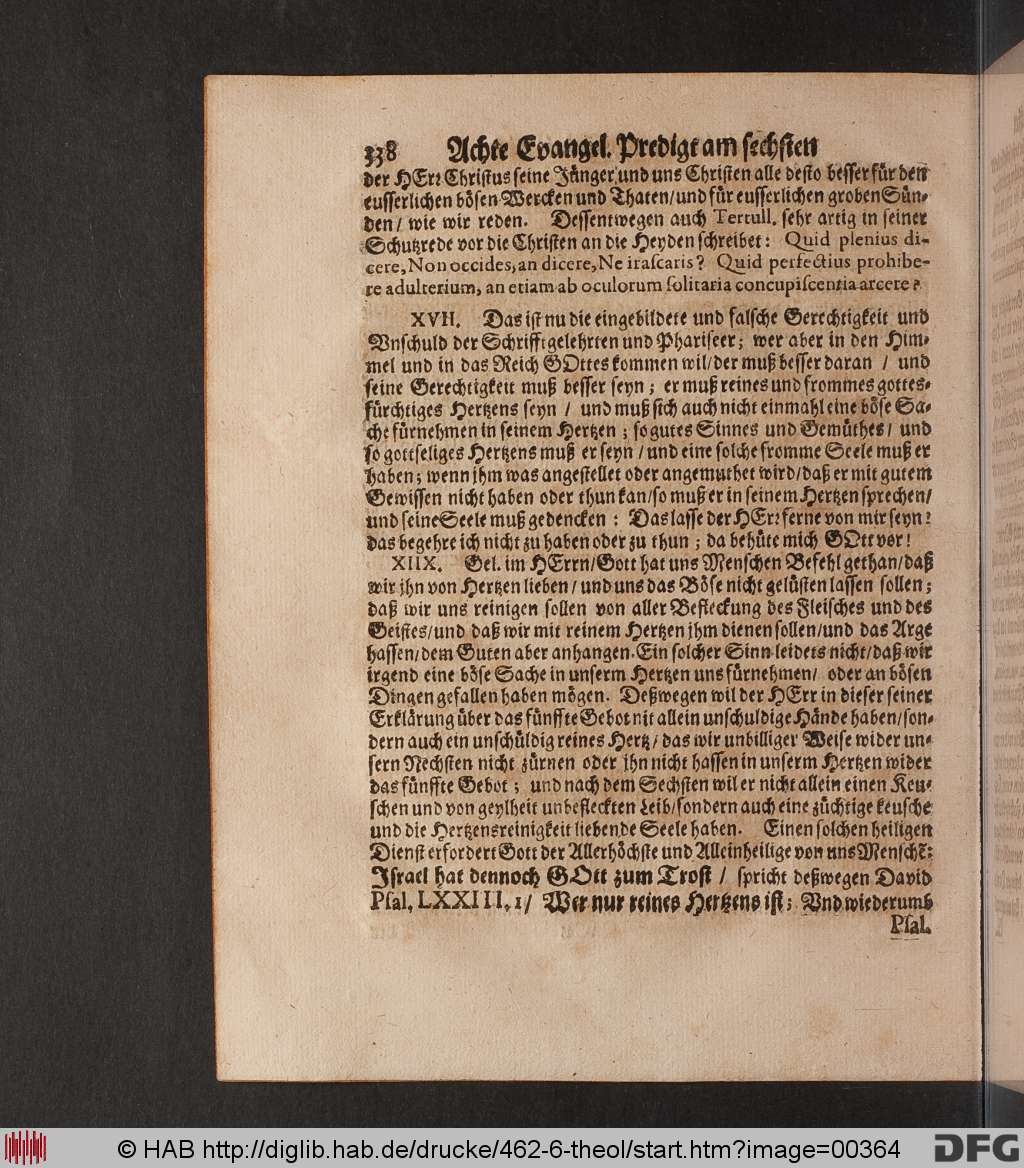 338 Achte Evangel. Predigt am sechsten
der HErr Christus seine Jünger und uns Christen alle desto besser für den
eusserlichen bösen Wercken und Thaten/ und für eusserlichen groben Sün-
den/ wie wir reden. Dessentwegen auch Tertull. sehr artig in seiner
Schutzrede vor die Christen an die Heyden schreibet: Quid plenius di-
cere, Non occides, an dicere, Ne irascaris? Quid perfectius prohibe-
re adulterium, an etiam ab oculorum solitaria concupiscentia arcere?
XVII. Das ist nu die eingebildete und falsche Gerechtigkeit und
Vnschuld der Schrifftgelehrten und Phariseer; wer aber in den Him-
mel und in das Reich GOttes kommen wil/ der muß besser daran / und
seine Gerechtigkeit muß besser seyn; er muß reines und frommes gottes-
fürchtiges Hertzens seyn / und muß sich auch nicht einmahl eine böse Sa-
che fürnehmen in seinem Hertzen; so gutes Sinnes und Gemüthes/ und
so gottseliges Hertzens muß er seyn / und eine solche fromme Seele muß er
haben; wenn jhm was angestellet oder angemuthet wird/ daß er mit gutem
Gewissen nicht haben oder thun kan/ so muß er in seinem Hertzen sprechen/
und seine Seele muß gedencken: Das lasse der HErr ferne von mir seyn!
das begehre ich nicht zu haben oder zu thun; da behüte mich GOtt vor!
XIIX. Gel. im HErrn/ Gott hat uns Menschen Befehl gethan/ daß
wir jhn von Hertzen lieben/ und uns das Böse nicht gelüsten lassen sollen;
daß wir uns reinigen sollen von aller Befleckung des Fleisches und des
Geistes/ und daß wir mit reinem Hertzen jhm dienen sollen/ und das Arge
hassen/ dem Guten aber anhangen. Ein solcher Sinn leidets nicht/ daß wir
irgend eine böse Sache in unserm Hertzen uns fürnehmen/ oder an bösen
Dingen gefallen haben mögen. Deßwegen wil der HErr in dieser seiner
Erklärung über das fünffte Gebot nit allein unschuldige Hände haben/ son-
dern auch ein unschüldig reines Hertz/ das wir unbilliger Weise wider un-
sern Nechsten nicht zürnen oder jhn nicht hassen in unserm Hertzen wider
das fünffte Gebot; und nach dem Sechsten wil er nicht allein einen Keu-
schen und von geylheit unbefleckten Leib/ sondern auch eine züchtige keusche
und die Hertzensreinigkeit liebende Seele haben. Einen solchen heiligen
Dienst erfordert Gott der Allerhöchste und Alleinheilige von uns Mensch̃:
Israel hat dennoch GOtt zum Trost / spricht deßwegen David
Psal. LXXIII, 1/ Wer nur reines Hertzens ist; Vnd wiederumb
Psal.
© HAB http://diglib.hab.de/drucke/462-6-theol/start.htm?image=00364
DFG